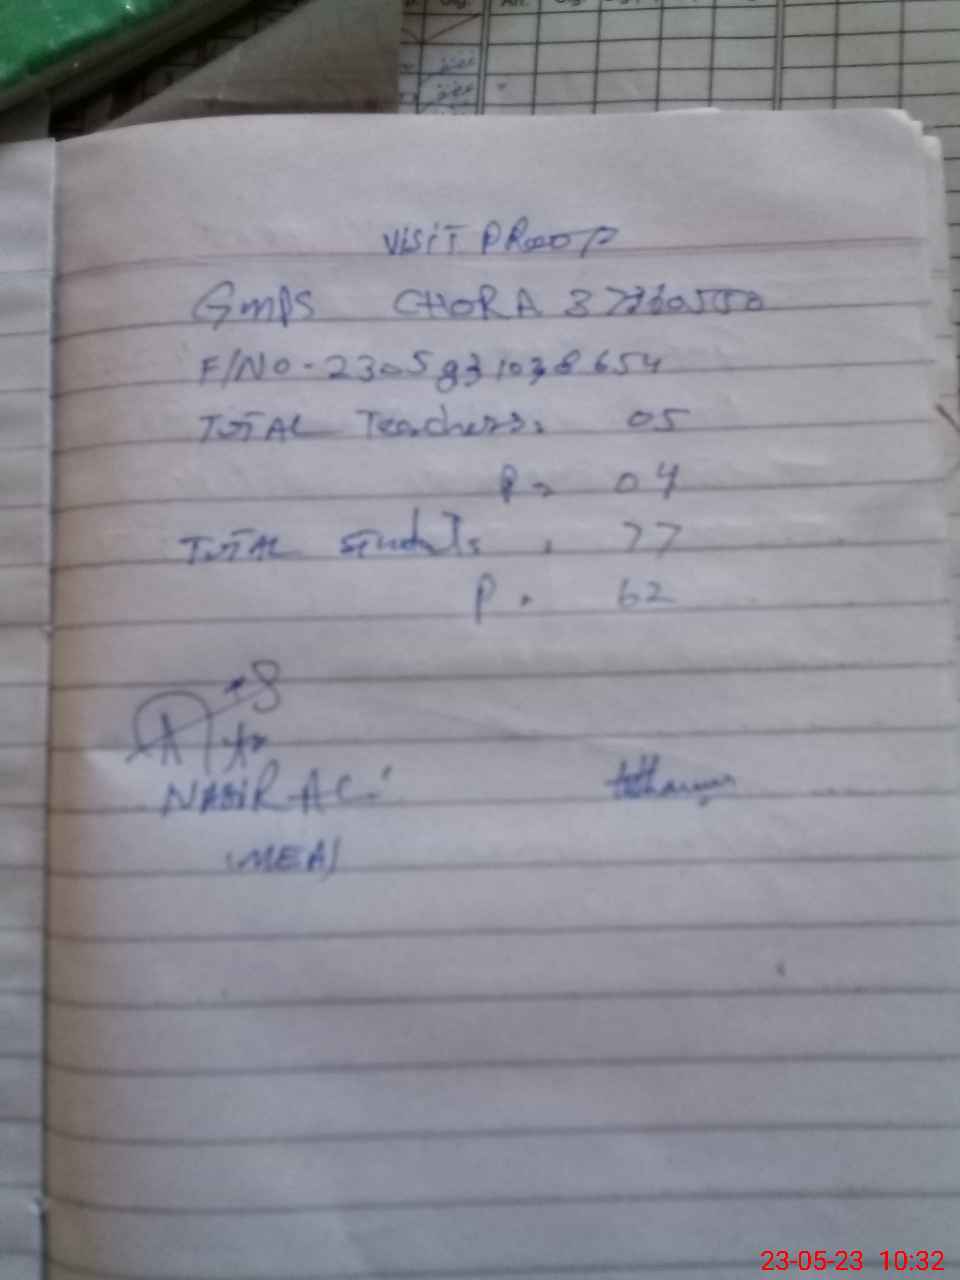 VISIT PROOF
GMPS CHORA 37360550
F/NO - 2305831038654
TOTAL Teachers. 05
P = 04
TOTAL Students . 77
P . 62
NASIR AC.
(MEA)
23-05-23 10:32